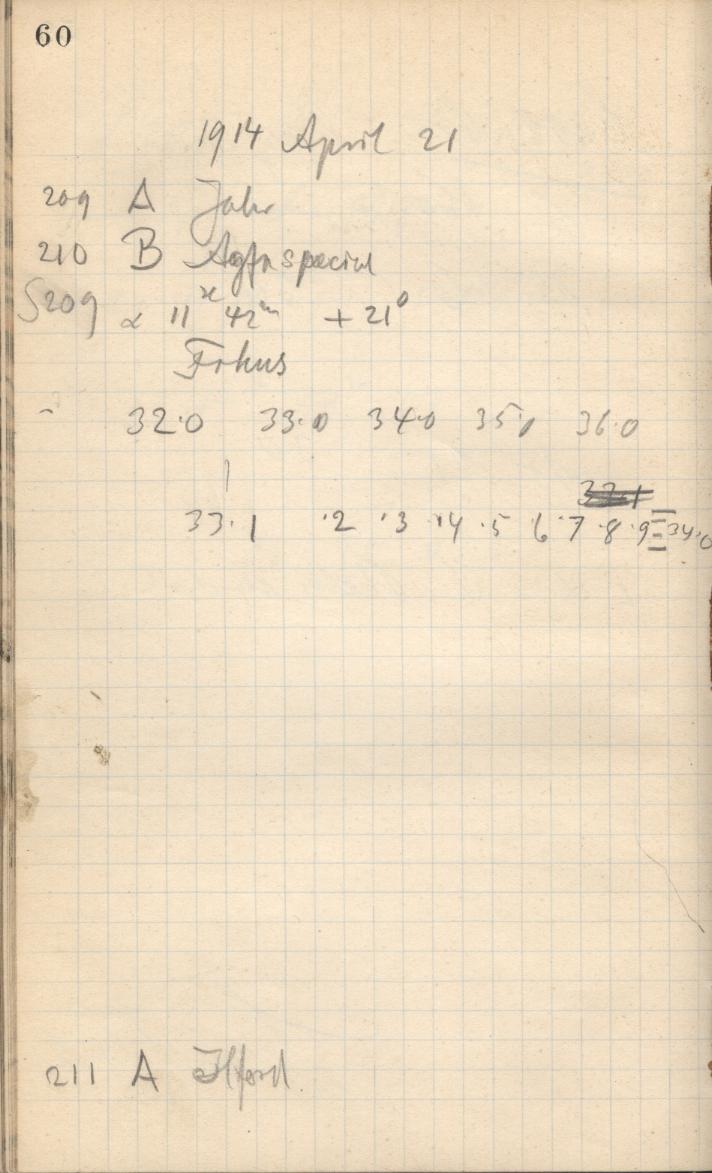 60
1914 April 21
209 A Jahr
210 B Agfa special
S209 α 11 42ᵐ +21⁰
Fokus
32·0 33·0 34·0 35·0 36·0
33·1 ·2 ·3 ·4 ·5 6 ·7 ·8 ·9 34·0
211 A Ilford